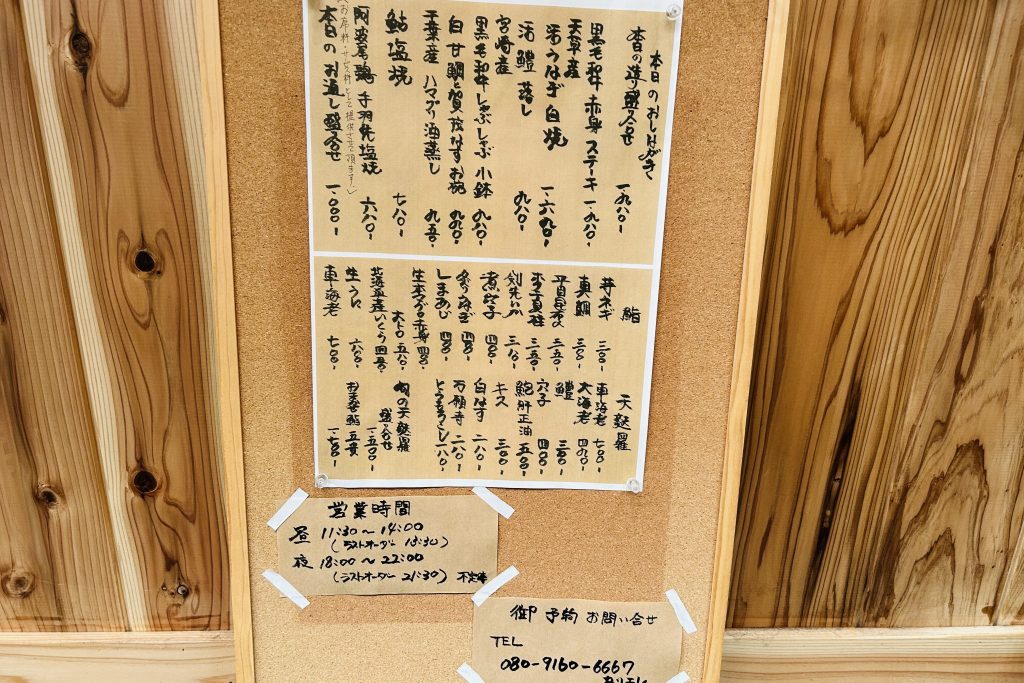 本日のおしながき
本日の造り盛り合せ 一、九八〇-
黒毛和牛 赤身 ステーキ 一、九八〇-
天草産
活うなぎ 白焼 一、六九〇-
活 鱧 落し 九八〇-
宮崎産
黒毛和牛しゃぶしゃぶ 小鉢 九八〇-
白甘鯛と賀茂なす お椀 九八〇-
千葉産 ハマグリ 酒蒸し 九五〇-
鮎塩焼 七八〇-
阿波尾鶏 手羽先塩焼 六八〇-
本日のお通し盛合せ 一、〇〇〇-
鮨
芽ネギ 三〇〇-
真鯛 三八〇-
平目昆布〆 三五〇-
本ミル貝柱 三五〇-
剣先いか
煮穴子 四〇〇-
炙りうなぎ 四八〇-
しまあじ 四八〇-
生本マグロ赤身 四八〇-
大トロ 五八〇-
北海道産いくら 四五〇-
生うに 六八〇-
車海老 七〇〇-
天麩羅
車海老 七〇〇-
大海老 四九〇-
鱧 三八〇-
穴子 四〇〇-
鮑肝正油 五〇〇-
キス 三〇〇-
白なす 二八〇-
万願寺 二八〇-
とうもろこし 一八〇-
旬の天麩羅
盛り合せ 一、五〇〇-
おまかせ鮨 五貫 一、七五〇-
営業時間
昼 11:30〜14:00
(ラストオーダー 13:30)
夜 18:00〜22:00
(ラストオーダー 21:30) 不定休
御予約 お問い合せ
TEL
080-9160-6667